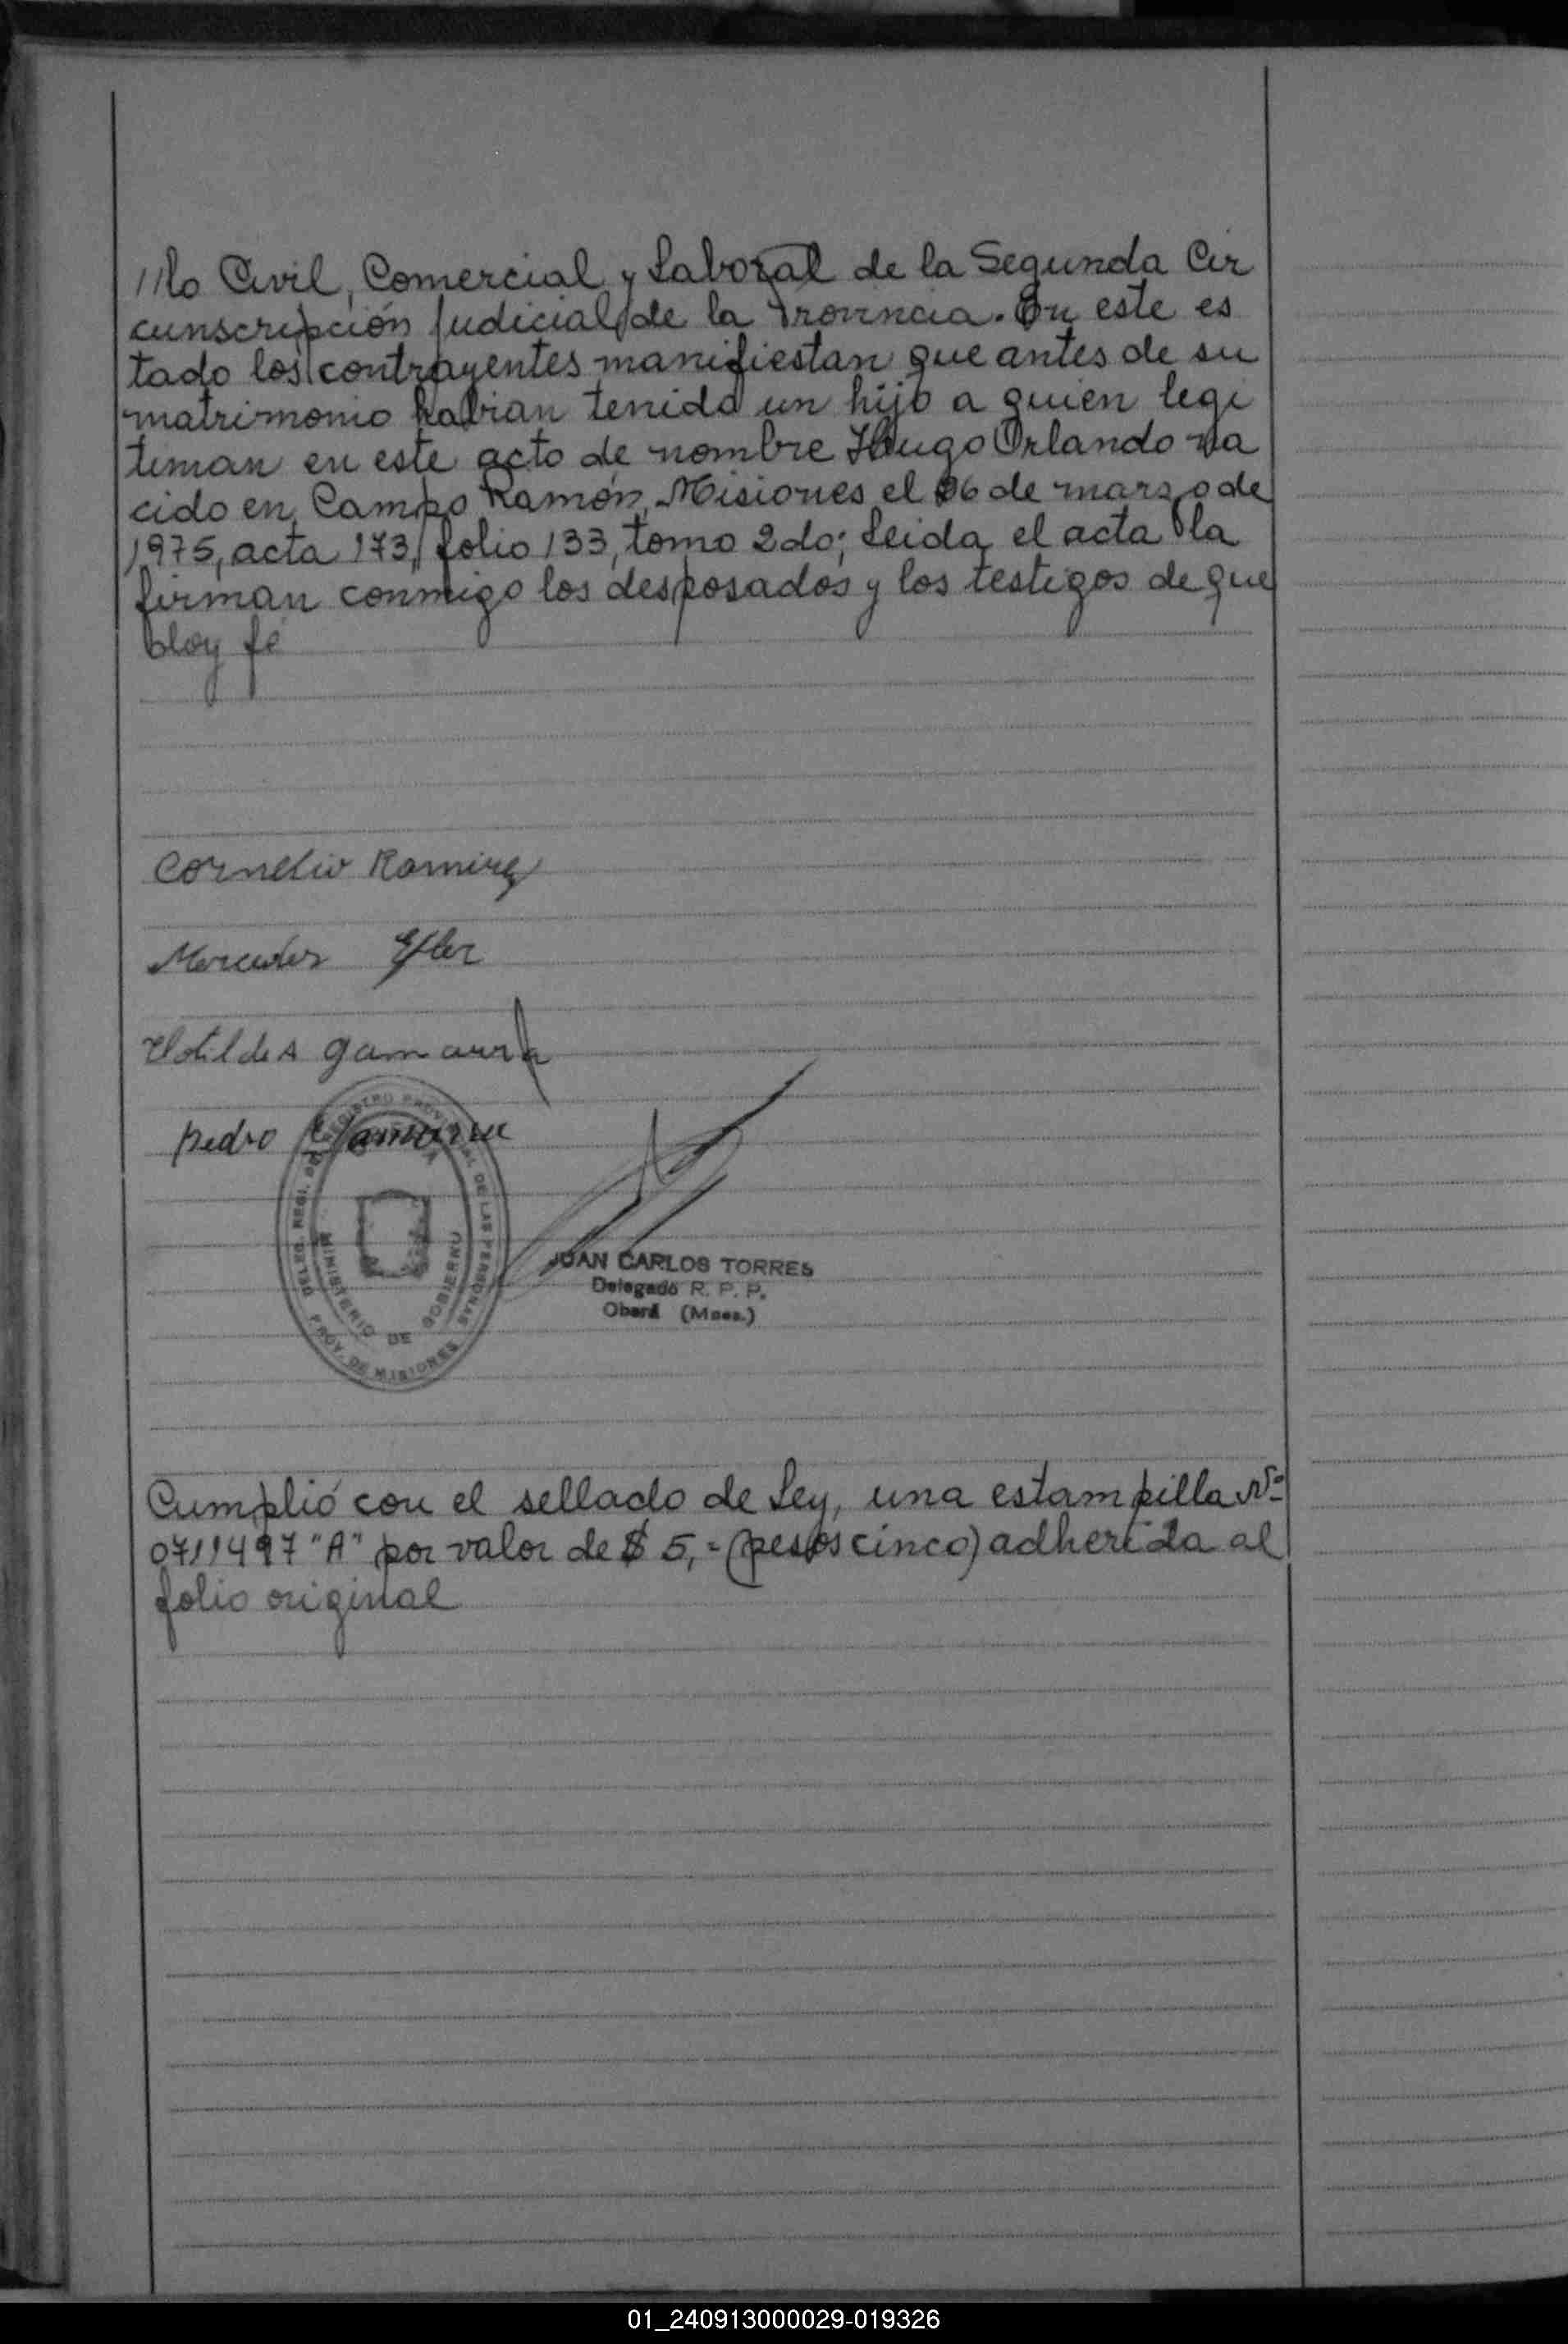 //lo Civil, Comercial y Laboral de la Segunda Cir
cunscripción Judicial de la Provincia. En este es
tado los contrayentes manifiestan que antes de su
matrimonio habian tenido un hijo a quien legi
timan en este acto de nombre Hugo Orlando na
cido en Campo Ramón, Misiones el 06 de marzo de
1975, acta 173, folio 133, tomo 2do; Leida el acta la
firman conmigo los desposados y los testigos de que
doy fé
Cornelio Ramirez
Mercedes
Clotildes Gamarra
Pedro Gamarra
DELEG. REGI. REGISTRO PROVINCIAL DE LAS PERSONAS
MINISTERIO DE GOBIERNO
PROV. DE MISIONES
JUAN CARLOS TORRES
Delegado R. P. P.
Oberá (Mnes.)
Cumplió con el sellado de Ley, una estampilla Nº
0711497 "A" por valor de $ 5,= (pesos cinco) adherida al
folio original
01_240913000029-019326